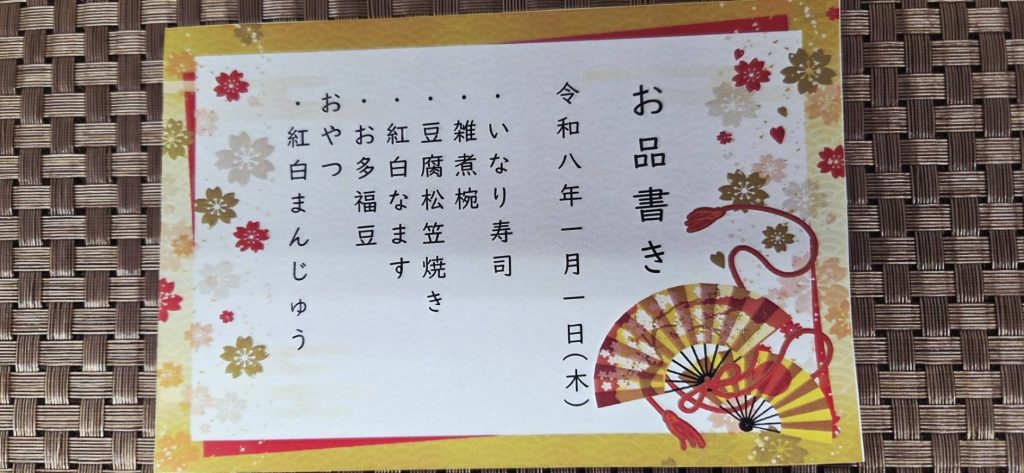 お品書き
令和八年一月一日(木)
・いなり寿司
・雑煮椀
・豆腐松笠焼き
・紅白なます
・お多福豆
おやつ
・紅白まんじゅう